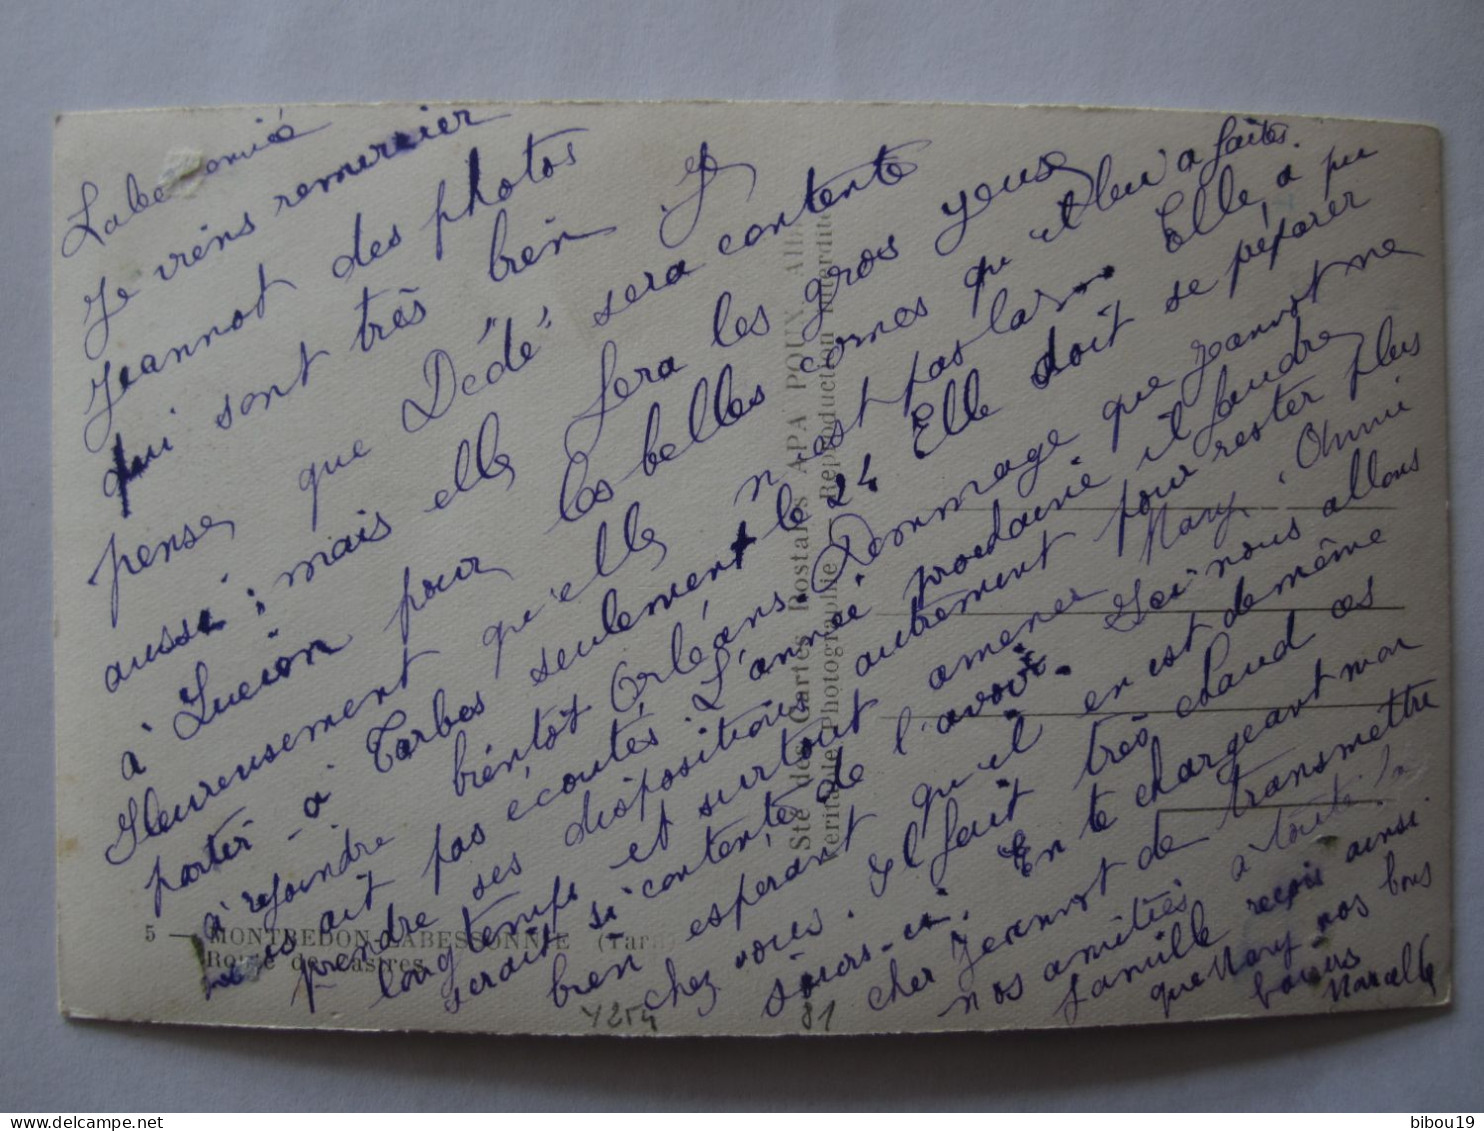 Je viens remercier
Jeannot des photos
qui sont très bien Je
pense que "Dédé" sera contente
aussi ; mais elle fera les gros yeux
à Lucien pour les belles cornes qu'il lui a faites.
Heureusement qu'elle n'est pas là... Elle a pu
partir à Tarbes seulement le 24 Elle doit se péparer
à rejoindre bientôt Orléans. Dommage que Jeannot ne
se soit pas écouté. L'année prochaine il faudra
prendre ses dispositions autrement pour rester plus
longtemps et surtout amener Mary. Ommi
serait si contente de l'avoir. Ici nous allons
bien esperant qu'il en est de même
chez vous. Il fait très chaud ces
jours-ci. En te chargeant mon
cher Jeannot de transmettre
nos amitiés à toute la
famille reçois ainsi
que Mary nos bons
baisers
Marcelle
5 — MONTREDON-LABESSONNIE (Tarn)
Route de Castres
Sté des Cartes Postales APA POUX Albi
Véritable Photographie Reproduction interdite
Y254
81
bibou19